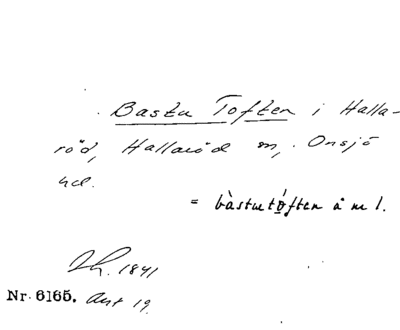 Bastu Toften i Halla-
röd, Hallaröd sn, Onsjö
hd.
= bàstutó̲ften å m l.
1841
Nr. 6165. Ant 19.